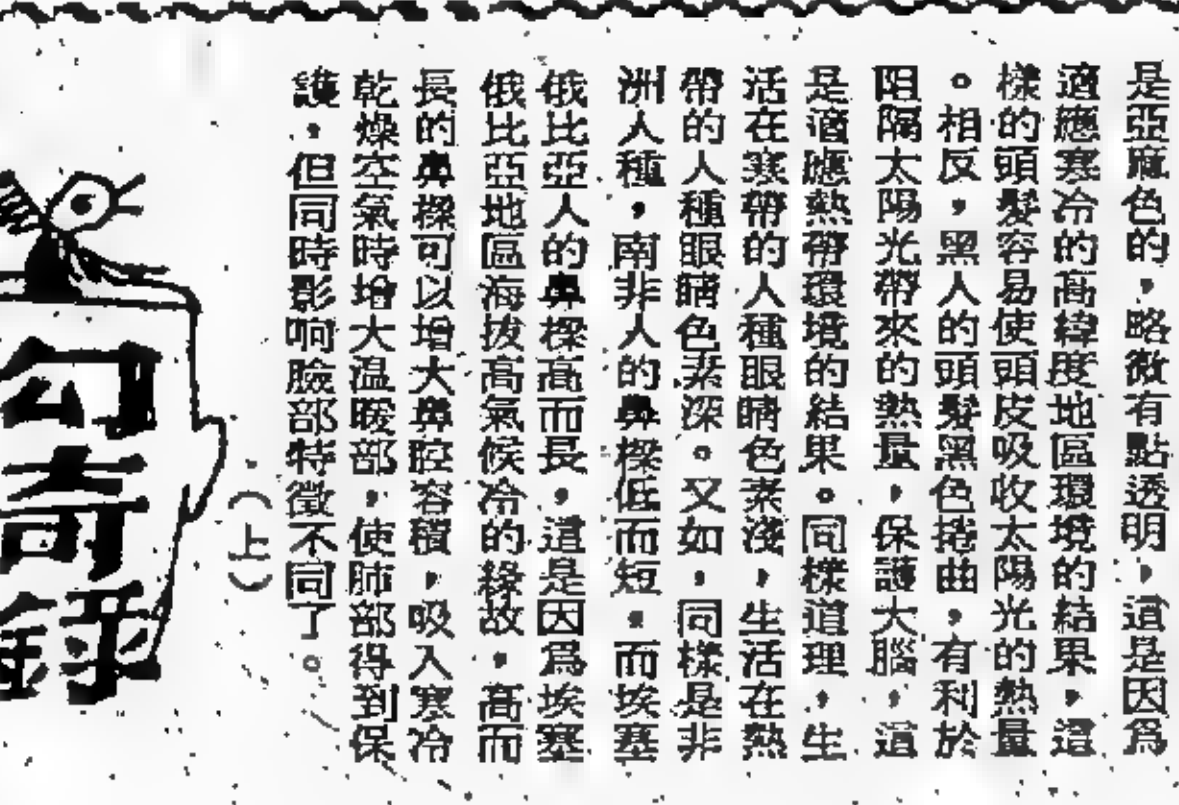 是亞麻色的，略微有點透明，這是因爲
適應寒冷的高緯度地區環境的結果，這
樣的頭髮容易使頭皮吸收太陽光的熱量
。相反，黑人的頭髮黑色捲曲，有利於
阻隔太陽光帶來的熱量，保護大腦，這
是適應熱帶環境的結果。同樣道理，生
活在寒帶的人種眼睛色素淺，生活在熱
帶的人種眼睛色素深。又如，同樣是非
洲人種，南非人的鼻樑低而短。而埃塞
俄比亞人的鼻樑高而長，這是因爲埃塞
俄比亞地區海拔高氣候冷的緣故，高而
長的鼻樑可以增大鼻腔容積，吸入寒冷
乾燥空氣時增大温暖部，使肺部得到保
護，但同時影响臉部特徵不同了。
（上）
勾奇錄